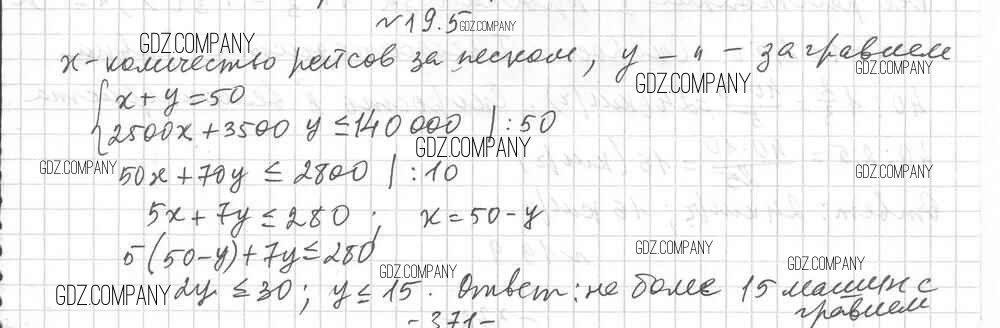 №19.5 GDZ.COMPANY
GDZ.COMPANY
x-количество рейсов за песком, y - " - за гравием
GDZ.COMPANY GDZ.COMPANY
{ x+y=50
2500x+3500 y ≤140 000 | :50
GDZ.COMPANY
GDZ.COMPANY 50x+70y ≤ 2800 | :10 GDZ.COMPANY
5x+7y≤280 ; x=50-y
5(50-y)+7y≤280 GDZ.COMPANY
GDZ.COMPANY GDZ.COMPANY
GDZ.COMPANY 2y ≤30; y≤15. Ответ: не более 15 машин с
гравием
-371-